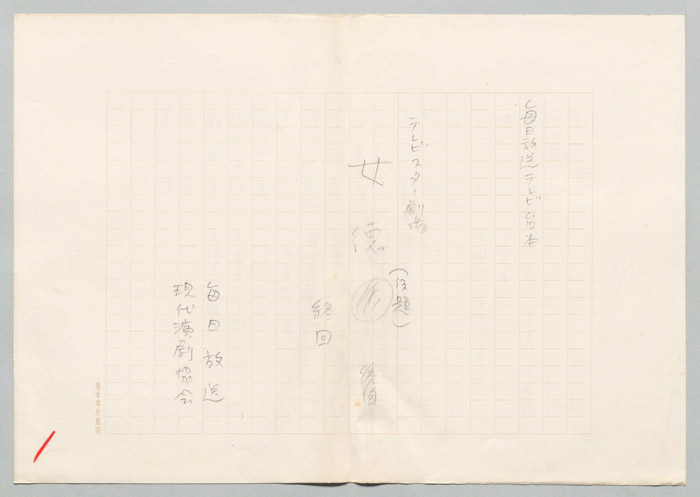 毎日放送テレビ台本
テレビスター劇場
女徳
(仮題)
終回
毎日放送
現代演劇協会